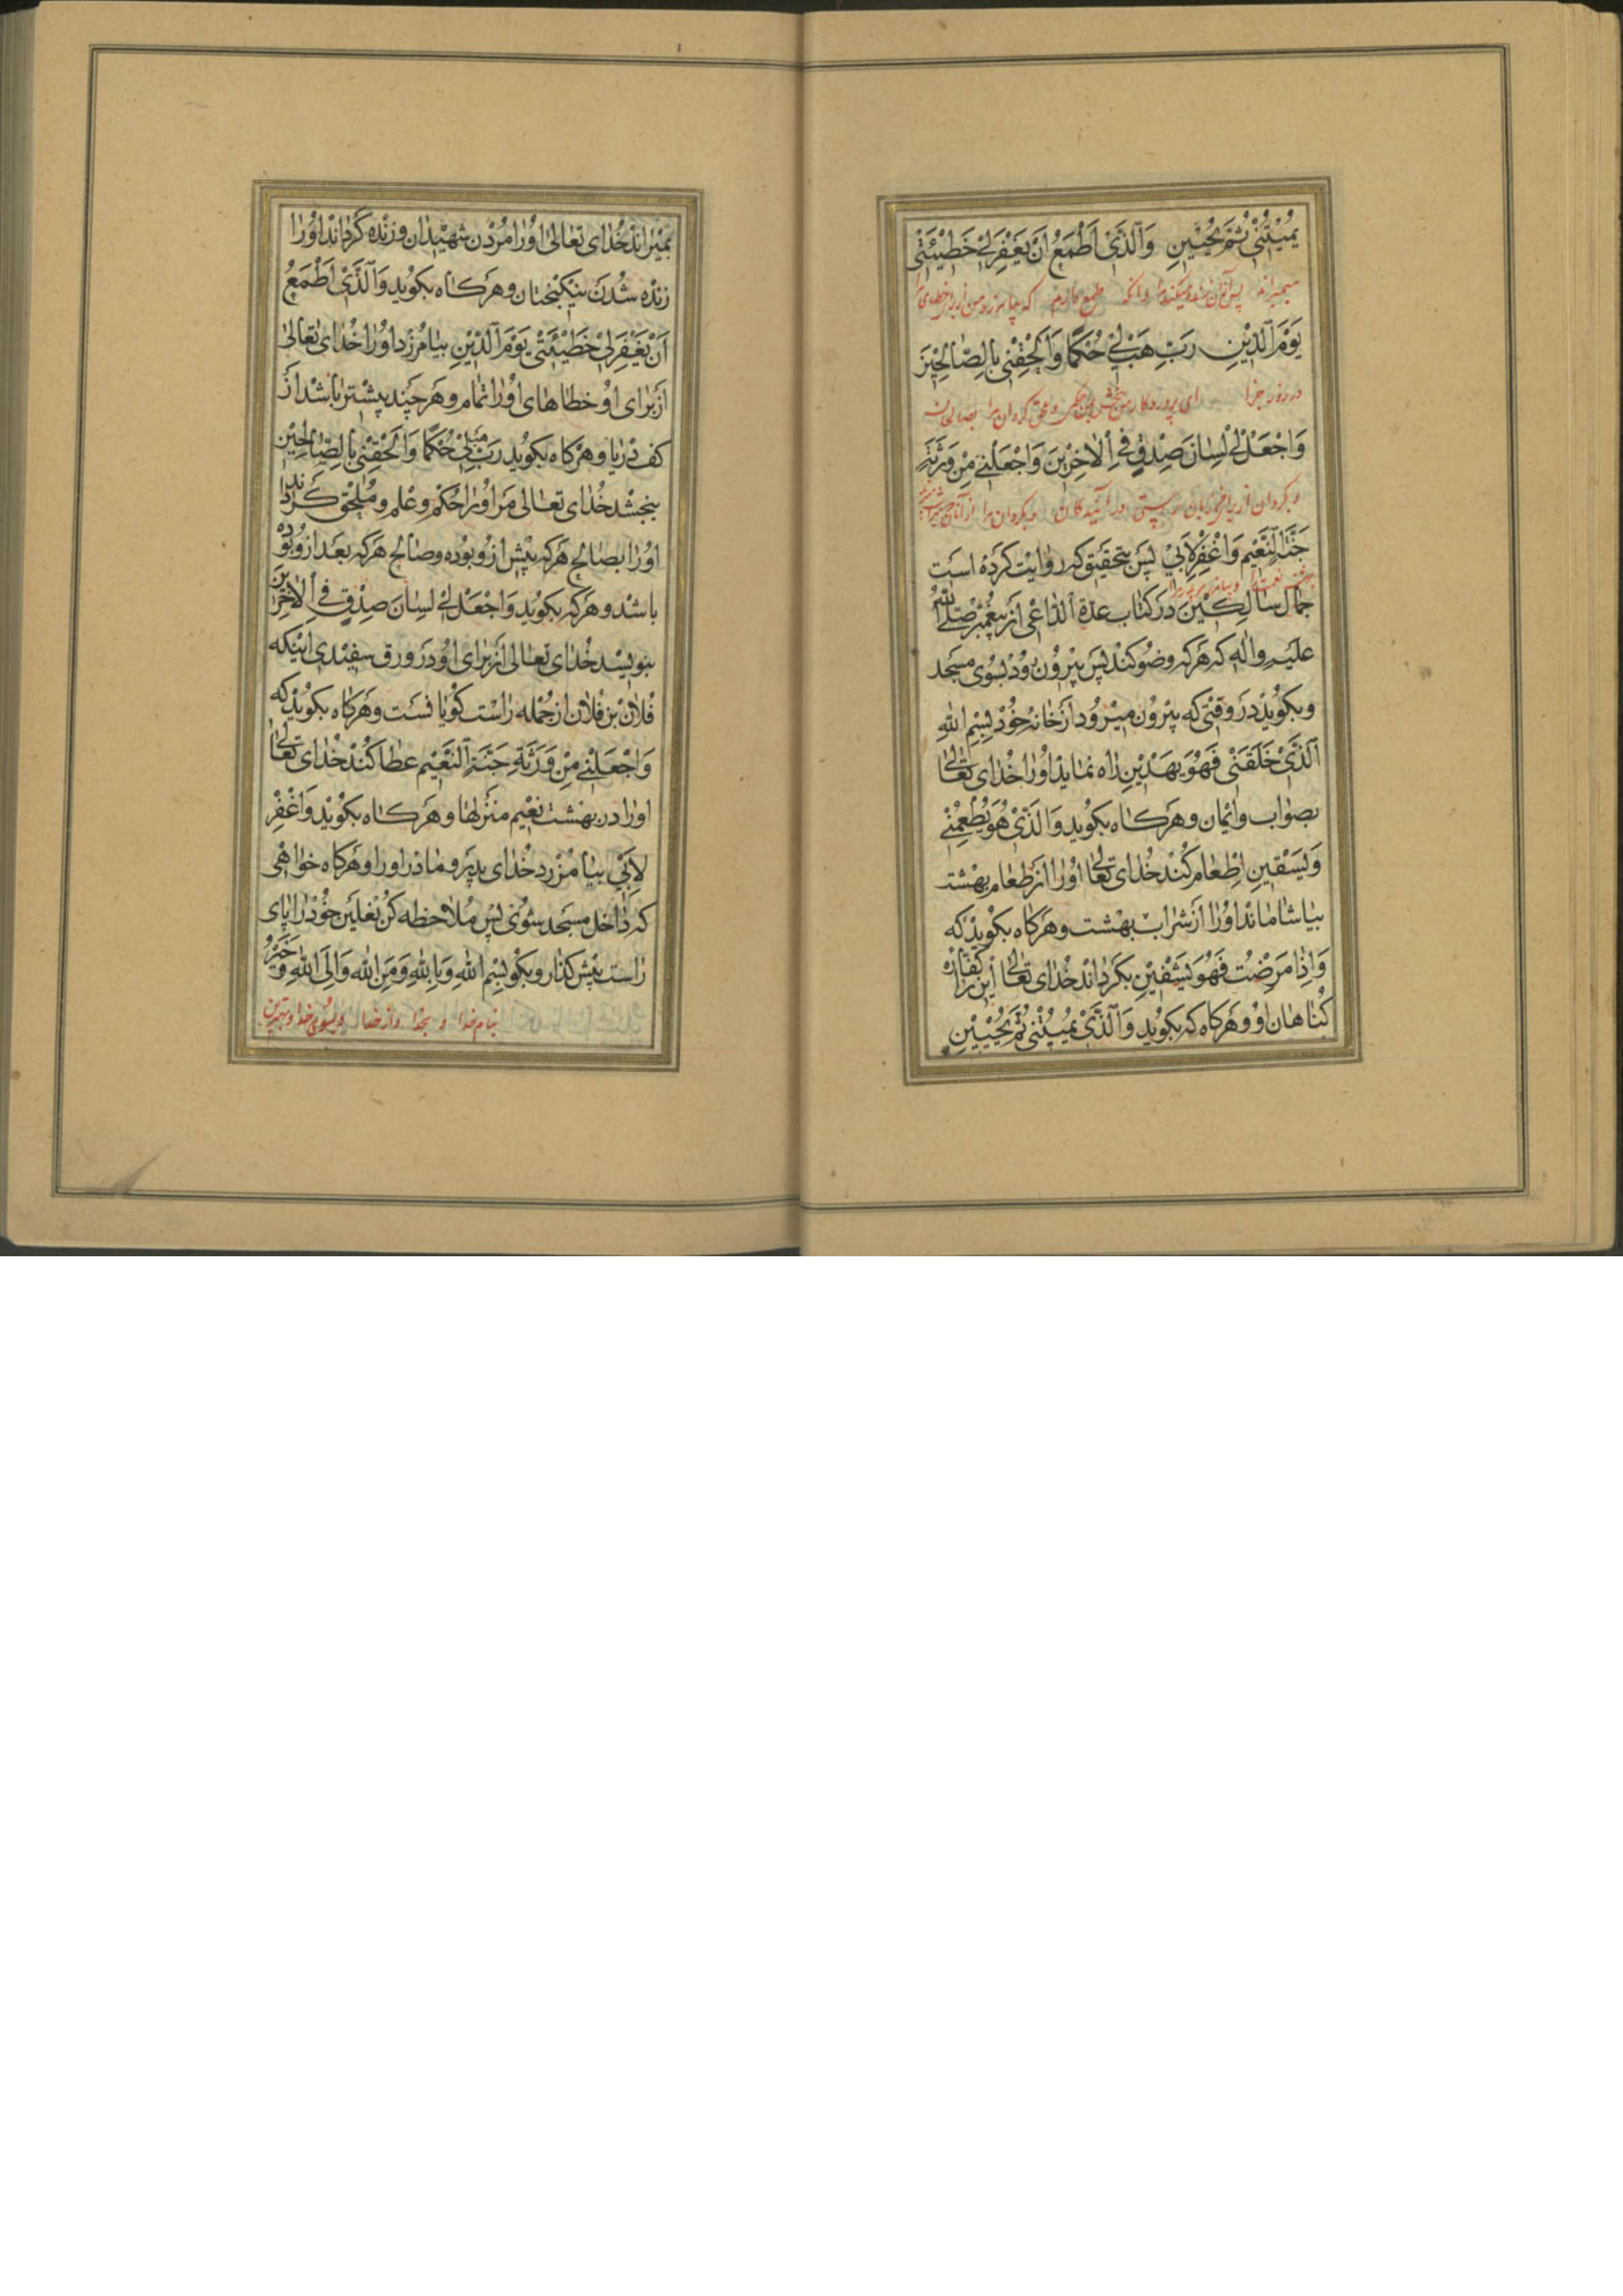 يُمِيتُنِي ثُمَّ يُحْيِينِ وَالَّذِي أَطْمَعُ أَنْ يَغْفِرَ لِي خَطِيئَتِي
میمیراند پس آنان زنده میکند مرا و آنکه طمع دارم که بیامرزد من از برای خطای مرا
يَوْمَ الدِّينِ رَبِّ هَبْ لِي حُكْمًا وَأَلْحِقْنِي بِالصَّالِحِينَ
در روز جزا ای پروردکار من ببخش من حکمی و ملحق کردان مرا بصالحان
وَاجْعَلْ لِي لِسَانَ صِدْقٍ فِي الْآخِرِينَ وَاجْعَلْنِي مِنْ وَرَثَةِ
و بکردان از برای من زبان راستی در آیندکان و بکردان مرا از آنان
جَنَّةِ النَّعِيمِ وَاغْفِرْ لِأَبِي پس بتحقیق که روایت کرده است
بهشت نعیم را و بیامرز پدر مرا
جمال سالکین در کتاب عدة الداعی از پیغمبر صلی الله
علیه واله که هرکه وضو کند پس بیرون رود بسوی مسجد
وبکوید در وقتی که بیرون میرود از خانه خود بِسْمِ اللهِ
الَّذِي خَلَقَنِي فَهُوَ يَهْدِينِ راه نماید اورا خدای تعالی
بصواب وایمان وهرکاه بکوید وَالَّذِي هُوَ يُطْعِمُنِي
وَيَسْقِينِ اطعام کند خدای تعالی اورا از طعام بهشت
بیاشاماند اورا از شراب بهشت وهرکاه بکوید که
وَإِذَا مَرِضْتُ فَهُوَ يَشْفِينِ بکرداند خدای تعالی این را کفاره
کناهان او وهرکاه که بکوید وَالَّذِي يُمِيتُنِي ثُمَّ يُحْيِينِ
بمیراند خدای تعالی اورا مردن شهیدان وزنده کرداند اورا
زنده شدن نیکبختان وهرکاه بکوید وَالَّذِي أَطْمَعُ
أَنْ يَغْفِرَ لِي خَطِيئَتِي يَوْمَ الدِّينِ بیامرزد اورا خدای تعالی
از برای او خطاهای اورا تمام وهرچند بیشتر باشد از
کف دریا وهرکاه بکوید رَبِّ هَبْ لِي حُكْمًا وَأَلْحِقْنِي بِالصَّالِحِينَ
ببخشد خدای تعالی مر اورا حکم وعلم وملحق کرداند
اورا بصالح هرکه پیش ازو بوده وصالح هرکه بعد ازو بوده
باشد وهرکه بکوید وَاجْعَلْ لِي لِسَانَ صِدْقٍ فِي الْآخِرِينَ
بنویسد خدای تعالی از برای او در ورق سفیدی اینکه
فلان بن فلان از جمله راست کویانست وهرکاه بکوید که
وَاجْعَلْنِي مِنْ وَرَثَةِ جَنَّةِ النَّعِيمِ عطا کند خدای تعالی
اورا در بهشت نعیم منزلها وهرکاه بکوید وَاغْفِرْ
لِأَبِي بیامرزد خدای پدر ومادر اورا وهرکاه خواهی
که داخل مسجد شوی پس ملاحظه کن نعلین خود را پای
راست پیش کذار وبکو بِسْمِ اللهِ وَبِاللهِ وَمِنَ اللهِ وَإِلَى اللهِ وَخَيْرُ
بنام خدا و بخدا و از خدا و بسوی خدا و بهترین